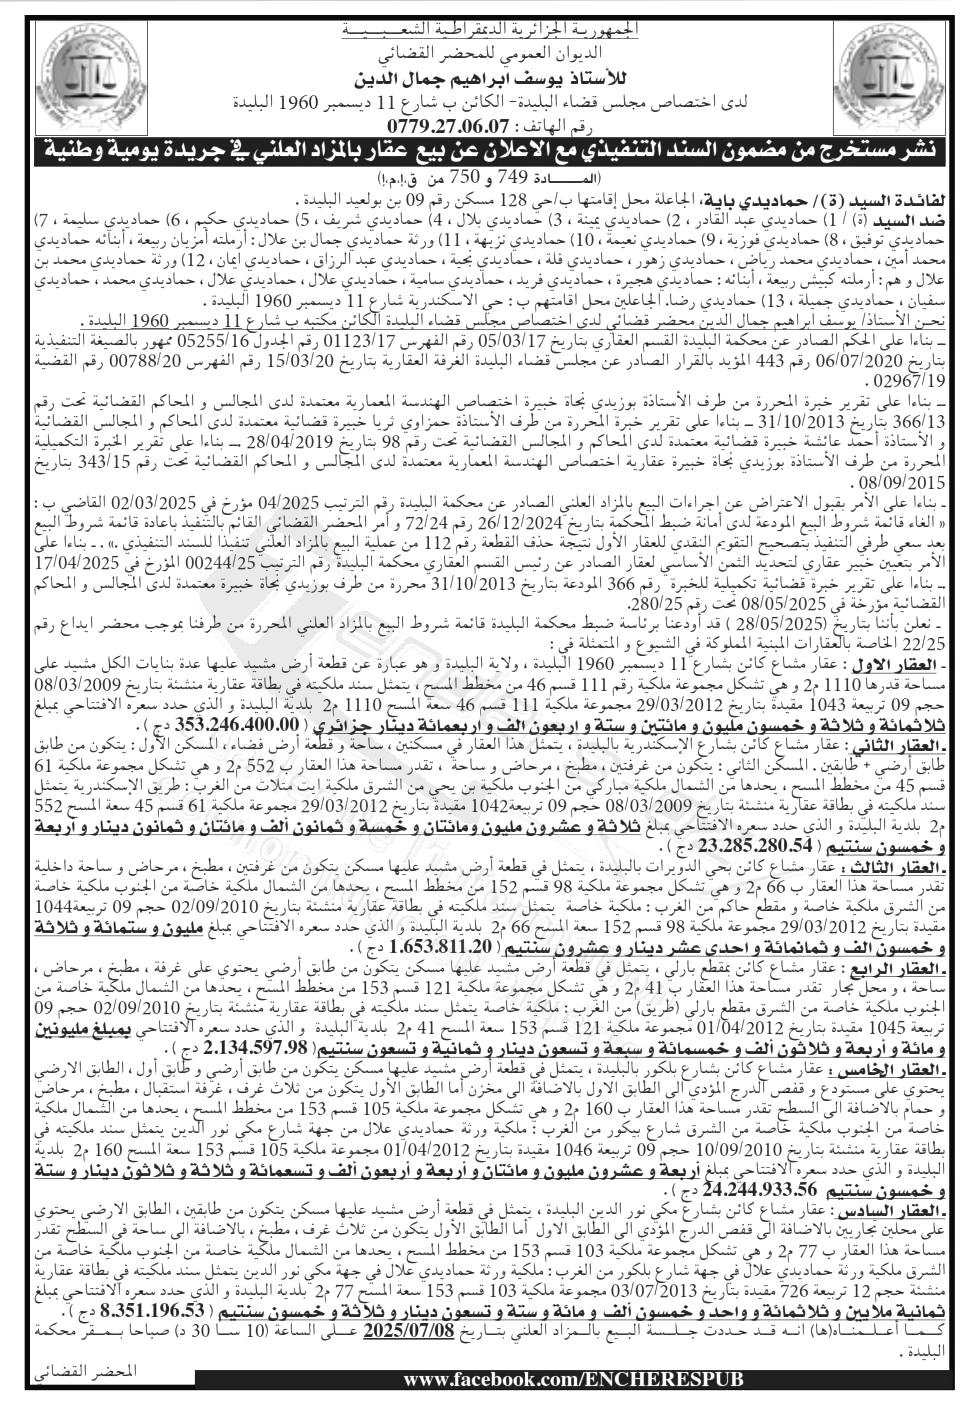 الجمهورية الجزائرية الديمقراطية الشعبـــية
الديوان العمومي للمحضر القضائي
للأستاذ يوسف ابراهيم جمال الدين
لدى اختصاص مجلس قضاء البليدة- الكائن ب شارع 11 ديسمبر 1960 البليدة
رقم الهاتف : 0779.27.06.07
نشر مستخرج من مضمون السند التنفيذي مع الاعلان عن بيع عقار بالمزاد العلني في جريدة يومية وطنية
(المـــــادة 749 و 750 من ق.إ.م.إ)
لفائدة السيد (ة)/ حماديدي باية، الجاعلة محل إقامتها ب/حي 128 مسكن رقم 09 بن بولعيد البليدة .
ضد السيد (ة) / 1) حماديدي عبد القادر ، 2) حماديدي يمينة ، 3) حماديدي بلال ، 4) حماديدي شريف ، 5) حماديدي حكيم ، 6) حماديدي سليمة ، 7)
حماديدي توفيق ، 8) حماديدي فوزية ، 9) حماديدي نعيمة ، 10) حماديدي نزيهة ، 11) ورثة حماديدي جمال بن علال : أرملته أمزيان ربيعة ، أبنائه حماديدي
محمد أمين ، حماديدي محمد رياض ، حماديدي زهور ، حماديدي فلة ، حماديدي يحية ، حماديدي عبد الرزاق ، حماديدي ايمان ، 12) ورثة حماديدي محمد بن
علال و هم : أرملته كبيش ربيعة ، أبنائه : حماديدي هجيرة ، حماديدي فريد ، حماديدي سامية ، حماديدي علال ، حماديدي علال ، حماديدي محمد ، حماديدي
سفيان ، حماديدي جميلة ، 13) حماديدي رضا. الجاعلين محل اقامتهم ب : حي الاسكندرية شارع 11 ديسمبر 1960 البليدة .
نحن الأستاذ/ يوسف ابراهيم جمال الدين محضر قضائي لدى اختصاص مجلس قضاء البليدة الكائن مكتبه ب شارع 11 ديسمبر 1960 البليدة .
ــ بناءا على الحكم الصادر عن محكمة البليدة القسم العقاري بتاريخ 05/03/17 رقم الفهرس 01123/17 رقم الجدول 05255/16 ممهور بالصيغة التنفيذية
بتاريخ 06/07/2020 رقم 443 المؤيد بالقرار الصادر عن مجلس قضاء البليدة الغرفة العقارية بتاريخ 15/03/20 رقم الفهرس 00788/20 رقم القضية
02967/19 .
ــ بناءا على تقرير خبرة المحررة من طرف الأستاذة بوزيدي نجاة خبيرة اختصاص الهندسة المعمارية معتمدة لدى المجالس و المحاكم القضائية تحت رقم
366/13 بتاريخ 31/10/2013 ــ بناءا على تقرير خبرة المحررة من طرف الأستاذة حمزاوي ثريا خبيرة قضائية معتمدة لدى المحاكم و المجالس القضائية
و الأستاذة أحمد عائشة خبيرة قضائية معتمدة لدى المحاكم و المجالس القضائية تحت رقم 98 بتاريخ 28/04/2019 ــ بناءا على تقرير الخبرة التكميلية
المحررة من طرف الأستاذة بوزيدي نجاة خبيرة عقارية اختصاص الهندسة المعمارية معتمدة لدى المجالس و المحاكم القضائية تحت رقم 343/15 بتاريخ
08/09/2015 .
- بناءا على الأمر بقبول الاعتراض عن اجراءات البيع بالمزاد العلني الصادر عن محكمة البليدة رقم الترتيب 04/2025 مؤرخ في 02/03/2025 القاضي ب :
« الغاء قائمة شروط البيع المودعة لدى أمانة ضبط المحكمة بتاريخ 26/12/2024 رقم 72/24 و أمر المحضر القضائي القائم بالتنفيذ باعادة قائمة شروط البيع
بعد سعي طرفي التنفيذ بتصحيح التقويم النقدي للعقار الأول نتيجة حذف القطعة رقم 112 من عملية البيع بالمزاد العلني تنفيذا للسند التنفيذي .» . ـ بناءا على
الأمر بتعيين خبير عقاري لتحديد الثمن الأساسي لعقار الصادر عن رئيس القسم العقاري محكمة البليدة رقم الترتيب 00244/25 المؤرخ في 17/04/2025
ــ بناءا على تقرير خبرة قضائية تكميلية للخبرة رقم 366 المودعة بتاريخ 31/10/2013 محررة من طرف بوزيدي نجاة خبيرة معتمدة لدى المجالس و المحاكم
القضائية مؤرخة في 08/05/2025 تحت رقم 280/25.
ـ نعلن بأننا بتاريخ (28/05/2025 ) قد أودعنا برئاسة ضبط محكمة البليدة قائمة شروط البيع بالمزاد العلني المحررة من طرفنا بموجب محضر ايداع رقم
22/25 الخاصة بالعقارات المبنية المملوكة في الشيوع و المتمثلة في :
- العقار الاول : عقار مشاع كائن بشارع 11 ديسمبر 1960 البليدة ، ولاية البليدة و هو عبارة عن قطعة أرض مشيد عليها عدة بنايات الكل مشيد على
مساحة قدرها 1110 م2 و هي تشكل مجموعة ملكية رقم 111 قسم 46 من مخطط المسح ، يتمثل سند ملكيته في بطاقة عقارية منشئة بتاريخ 08/03/2009
حجم 09 تربيعة 1043 مقيدة بتاريخ 29/03/2012 مجموعة ملكية 111 قسم 46 سعة المسح 1110 م2 بلدية البليدة و الذي حدد سعره الافتتاحي بمبلغ
ثلاثمائة و ثلاثة و خمسون مليون و مائتين و ستة و اربعون الف و اربعمائة دينار جزائري ( 353.246.400.00 دج ) .
ـ العقار الثاني : عقار مشاع كائن بشارع الإسكندرية بالبليدة ، يتمثل هذا العقار في مسكنين ، ساحة و قطعة أرض فضاء ، المسكن الأول : يتكون من طابق
طابق أرضي + طابقين . المسكن الثاني : يتكون من غرفتين ، مطبخ ، مرحاض و ساحة ، تقدر مساحة هذا العقار ب 552 م2 و هي تشكل مجموعة ملكية 61
قسم 45 من مخطط المسح ، يحدها من الشمال ملكية مباركي من الجنوب ملكية بن يحي من الشرق ملكية ايت متلات من الغرب : طريق الإسكندرية يتمثل
سند ملكيته في بطاقة عقارية منشئة بتاريخ 08/03/2009 حجم 09 تربيعة 1042 مقيدة بتاريخ 29/03/2012 مجموعة ملكية 61 قسم 45 سعة المسح 552
م2 بلدية البليدة و الذي حدد سعره الافتتاحي بمبلغ ثلاثة و عشرون مليون ومائتان و خمسة و ثمانون ألف و مائتان و ثمانون دينار و أربعة
و خمسون سنتيم ( 23.285.280.54 دج ) .
ـ العقار الثالث : عقار مشاع كائن بحي الدويرات بالبليدة ، يتمثل في قطعة أرض مشيد عليها مسكن يتكون من غرفتين ، مطبخ ، مرحاض و ساحة داخلية
تقدر مساحة هذا العقار ب 66 م2 و هي تشكل مجموعة ملكية 98 قسم 152 من مخطط المسح ، يحدها من الشمال ملكية خاصة من الجنوب ملكية خاصة
من الشرق ملكية خاصة و مقطع حاكم من الغرب : ملكية خاصة يتمثل سند ملكيته في بطاقة عقارية منشئة بتاريخ 02/09/2010 حجم 09 تربيعة 1044
مقيدة بتاريخ 29/03/2012 مجموعة ملكية 98 قسم 152 سعة المسح 66 م2 بلدية البليدة و الذي حدد سعره الافتتاحي بمبلغ مليون و ستمائة و ثلاثة
و خمسون الف و ثمانمائة و احدى عشر دينار و عشرون سنتيم ( 1.653.811.20 دج ) .
ـ العقار الرابع : عقار مشاع كائن بمقطع بارلي ، يتمثل في قطعة أرض مشيد عليها مسكن يتكون من طابق أرضي يحتوي على غرفة ، مطبخ ، مرحاض ،
ساحة ، و محل نجار تقدر مساحة هذا العقار ب 41 م2 و هي تشكل مجموعة ملكية 121 قسم 153 من مخطط المسح ، يحدها من الشمال ملكية خاصة من
الجنوب ملكية خاصة من الشرق مقطع بارلي (طريق) من الغرب : ملكية خاصة يتمثل سند ملكيته في بطاقة عقارية منشئة بتاريخ 02/09/2010 حجم 09
تربيعة 1045 مقيدة بتاريخ 01/04/2012 مجموعة ملكية 121 قسم 153 سعة المسح 41 م2 بلدية البليدة و الذي حدد سعره الافتتاحي بمبلغ مليونين
و مائة و أربعة و ثلاثون ألف و خمسمائة و سبعة و تسعون دينار و ثمانية و تسعون سنتيم( 2.134.597.98 دج ) .
ـ العقار الخامس : عقار مشاع كائن بشارع بلكور بالبليدة ، يتمثل في قطعة أرض مشيد عليها مسكن يتكون من طابق أرضي و طابق أول ، الطابق الارضي
يحتوي على مستودع و قفص الدرج المؤدي الى الطابق الاول بالاضافة الى مخزن أما الطابق الأول يتكون من ثلاث غرف ، غرفة استقبال ، مطبخ ، مرحاض
و حمام بالاضافة الى السطح تقدر مساحة هذا العقار ب 160 م2 و هي تشكل مجموعة ملكية 105 قسم 153 من مخطط المسح ، يحدها من الشمال ملكية
خاصة من الجنوب ملكية خاصة من الشرق شارع بيكور من الغرب : ملكية ورثة حماديدي علال من جهة شارع مكي نور الدين يتمثل سند ملكيته في
بطاقة عقارية منشئة بتاريخ 10/09/2010 حجم 09 تربيعة 1046 مقيدة بتاريخ 01/04/2012 مجموعة ملكية 105 قسم 153 سعة المسح 160 م2 بلدية
البليدة و الذي حدد سعره الافتتاحي بمبلغ أربعة و عشرون مليون و مائتان و أربعة و أربعون ألف و تسعمائة و ثلاثة و ثلاثون دينار و ستة
و خمسون سنتيم ( 24.244.933.56 دج ) .
ـ العقار السادس : عقار مشاع كائن بشارع مكي نور الدين البليدة ، يتمثل في قطعة أرض مشيد عليها مسكن يتكون من طابقين ، الطابق الارضي يحتوي
على محلين تجاريين بالاضافة الى قفص الدرج المؤدي الى الطابق الاول أما الطابق الأول يتكون من ثلاث غرف ، مطبخ ، بالاضافة الى ساحة في السطح تقدر
مساحة هذا العقار ب 77 م2 و هي تشكل مجموعة ملكية 103 قسم 153 من مخطط المسح ، يحدها من الشمال ملكية خاصة من الجنوب ملكية خاصة من
الشرق ملكية ورثة حماديدي علال في جهة شارع بلكور من الغرب : ملكية ورثة حماديدي علال في جهة مكي نور الدين يتمثل سند ملكيته في بطاقة عقارية
منشئة حجم 12 تربيعة 726 مقيدة بتاريخ 03/07/2013 مجموعة ملكية 103 قسم 153 سعة المسح 77 م2 بلدية البليدة و الذي حدد سعره الافتتاحي بمبلغ
ثمانية ملايين و ثلاثمائة و واحد و خمسون ألف و مائة و ستة و تسعون دينار و ثلاثة و خمسون سنتيم ( 8.351.196.53 دج ) .
كـمـا أعـلـمـناه(ها) انه قـد حـددت جلـسة البيع بالـمزاد العلني بتـاريخ 2025/07/08 عـلى الساعة (10 سـا 30 د) صباحا بـمقر محكمة
البليدة .
المحضر القضائي
www.facebook.com/ENCHERESPUB